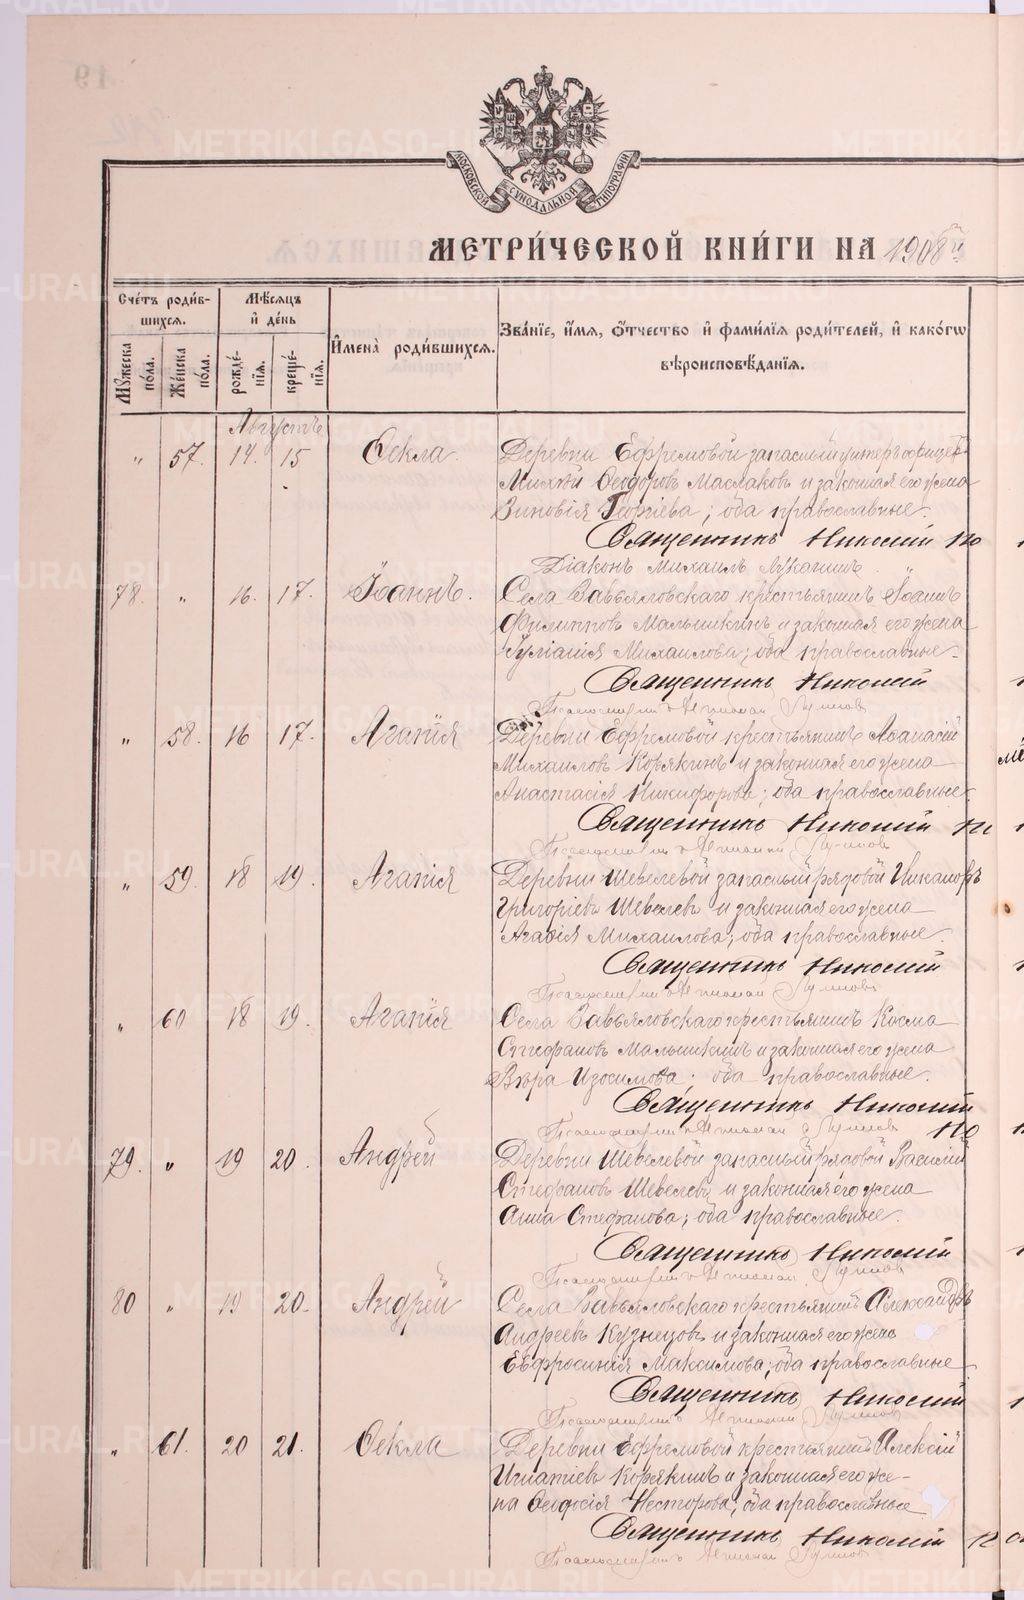 МОСКОВСКОЙ СѴНОДАЛЬНОЙ ТИПОГРАФІИ
МЕТРИ́ЧЕСКОЙ КНИ́ГИ НА 1908 й
Сче́тъ роди́в-
шихся.
Мѣ́сяцъ
и҆ де́нь
И҆мена̀ роди́вшихся.
Зва́нїе, и҆́мя, ѻ҆́тчество и҆ фами́лїя роди́телей, и҆ како́гѡ
вѣроисповѣ́данїя.
Мꙋ́жеска по́ла.
Же́нска по́ла.
рожде́-нїя.
креще́-нїя.
Августъ
" 57. 14. 15 Ѳекла. Деревни Ефремовой запасный унтеръ офицеръ
Михѣй Ѳеодоровъ Маслаковъ и законная его жена
Зиновія Георгіева; оба православные.
Священникъ Николай
Діаконъ Михаилъ Луканинъ
78. " 16. 17. Іоаннъ. Села Завьяловскаго крестьянинъ Іоаннъ
Филипповъ Малышкинъ и законная его жена
Іуліанія Михаилова; оба православные.
Священникъ Николай
Псаломщикъ
" 58. 16 17. Агапія Деревни Ефремовой крестьянинъ Аѳанасій
Михаиловъ Корякинъ и законная его жена
Анастасія Никифорова; оба православные.
Священникъ Николай
Псаломщикъ
" 59. 18 19. Агапія Деревни Шевелевой запасный рядовой Никаноръ
Григоріевъ Шевелевъ и законная его жена
Агафія Михаилова; оба православные.
Священникъ Николай
Псаломщикъ
" 60 18 19. Агапія Села Завьяловскаго крестьянинъ Косма
Стефановъ Малышкинъ и законная его жена
Вѣра Изосимова; оба православные.
Священникъ Николай
Псаломщикъ
79. " 19 20. Андрей Деревни Шевелевой запасный рядовой Василій
Стефановъ Шевелевъ и законная его жена
Анна Стефанова; оба православные.
Священникъ Николай
Псаломщикъ
80 " 19 20. Андрей Села Завьяловскаго крестьянинъ Александръ
Андреевъ Кузнецовъ и законная его жена
Евфросинія Максимова; оба православные
Священникъ Николай
Псаломщикъ
" 61. 20 21. Ѳекла Деревни Ефремовой крестьянинъ Алексій
Игнатіевъ Корякинъ и законная его же-
на Ѳеодосія Несторова; оба православные
Священникъ Николай
Псаломщикъ
METRIKI.GASO-URAL.RU